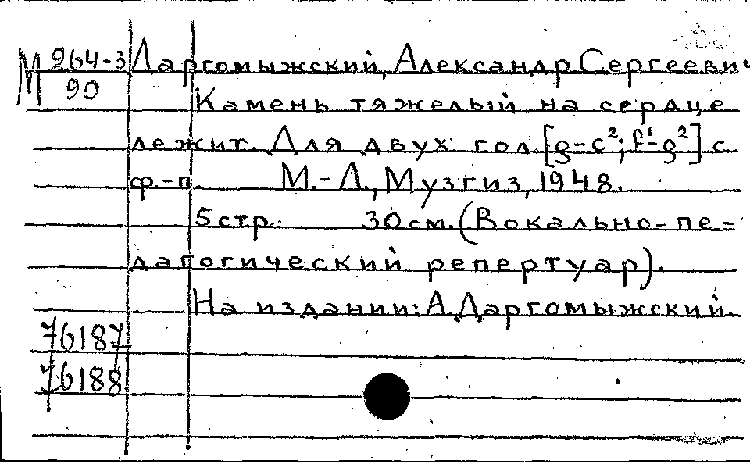 М 264-3 Даргомыжский, Александр Сергеевич
90
Камень тяжелый на сердце
лежит. Для двух гол. [g-c²; f¹-g²] с
ф.-п. М.-Л., Музгиз, 1948.
5 стр. 30 см. (Вокально-пе=
дагогический репертуар).
На издании: А. Даргомыжский.
76187
76188